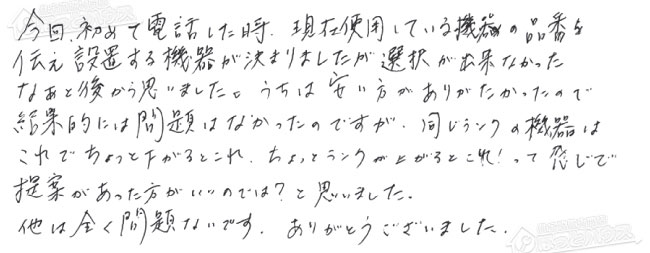 今回、初めて電話した時、現在使用している機器の品番を
伝え設置する機器が決まりましたが選択が出来なかった
なぁと後から思いました。うちは安い方がありがたかったので
結果的には問題はなかったのですが、同じランクの機器は
これでちょっと下がるとこれ、ちょっとランクが上がるとこれ!って感じで
提案があった方がいいのでは?と思いました。
他は全く問題ないです。ありがとうございました。